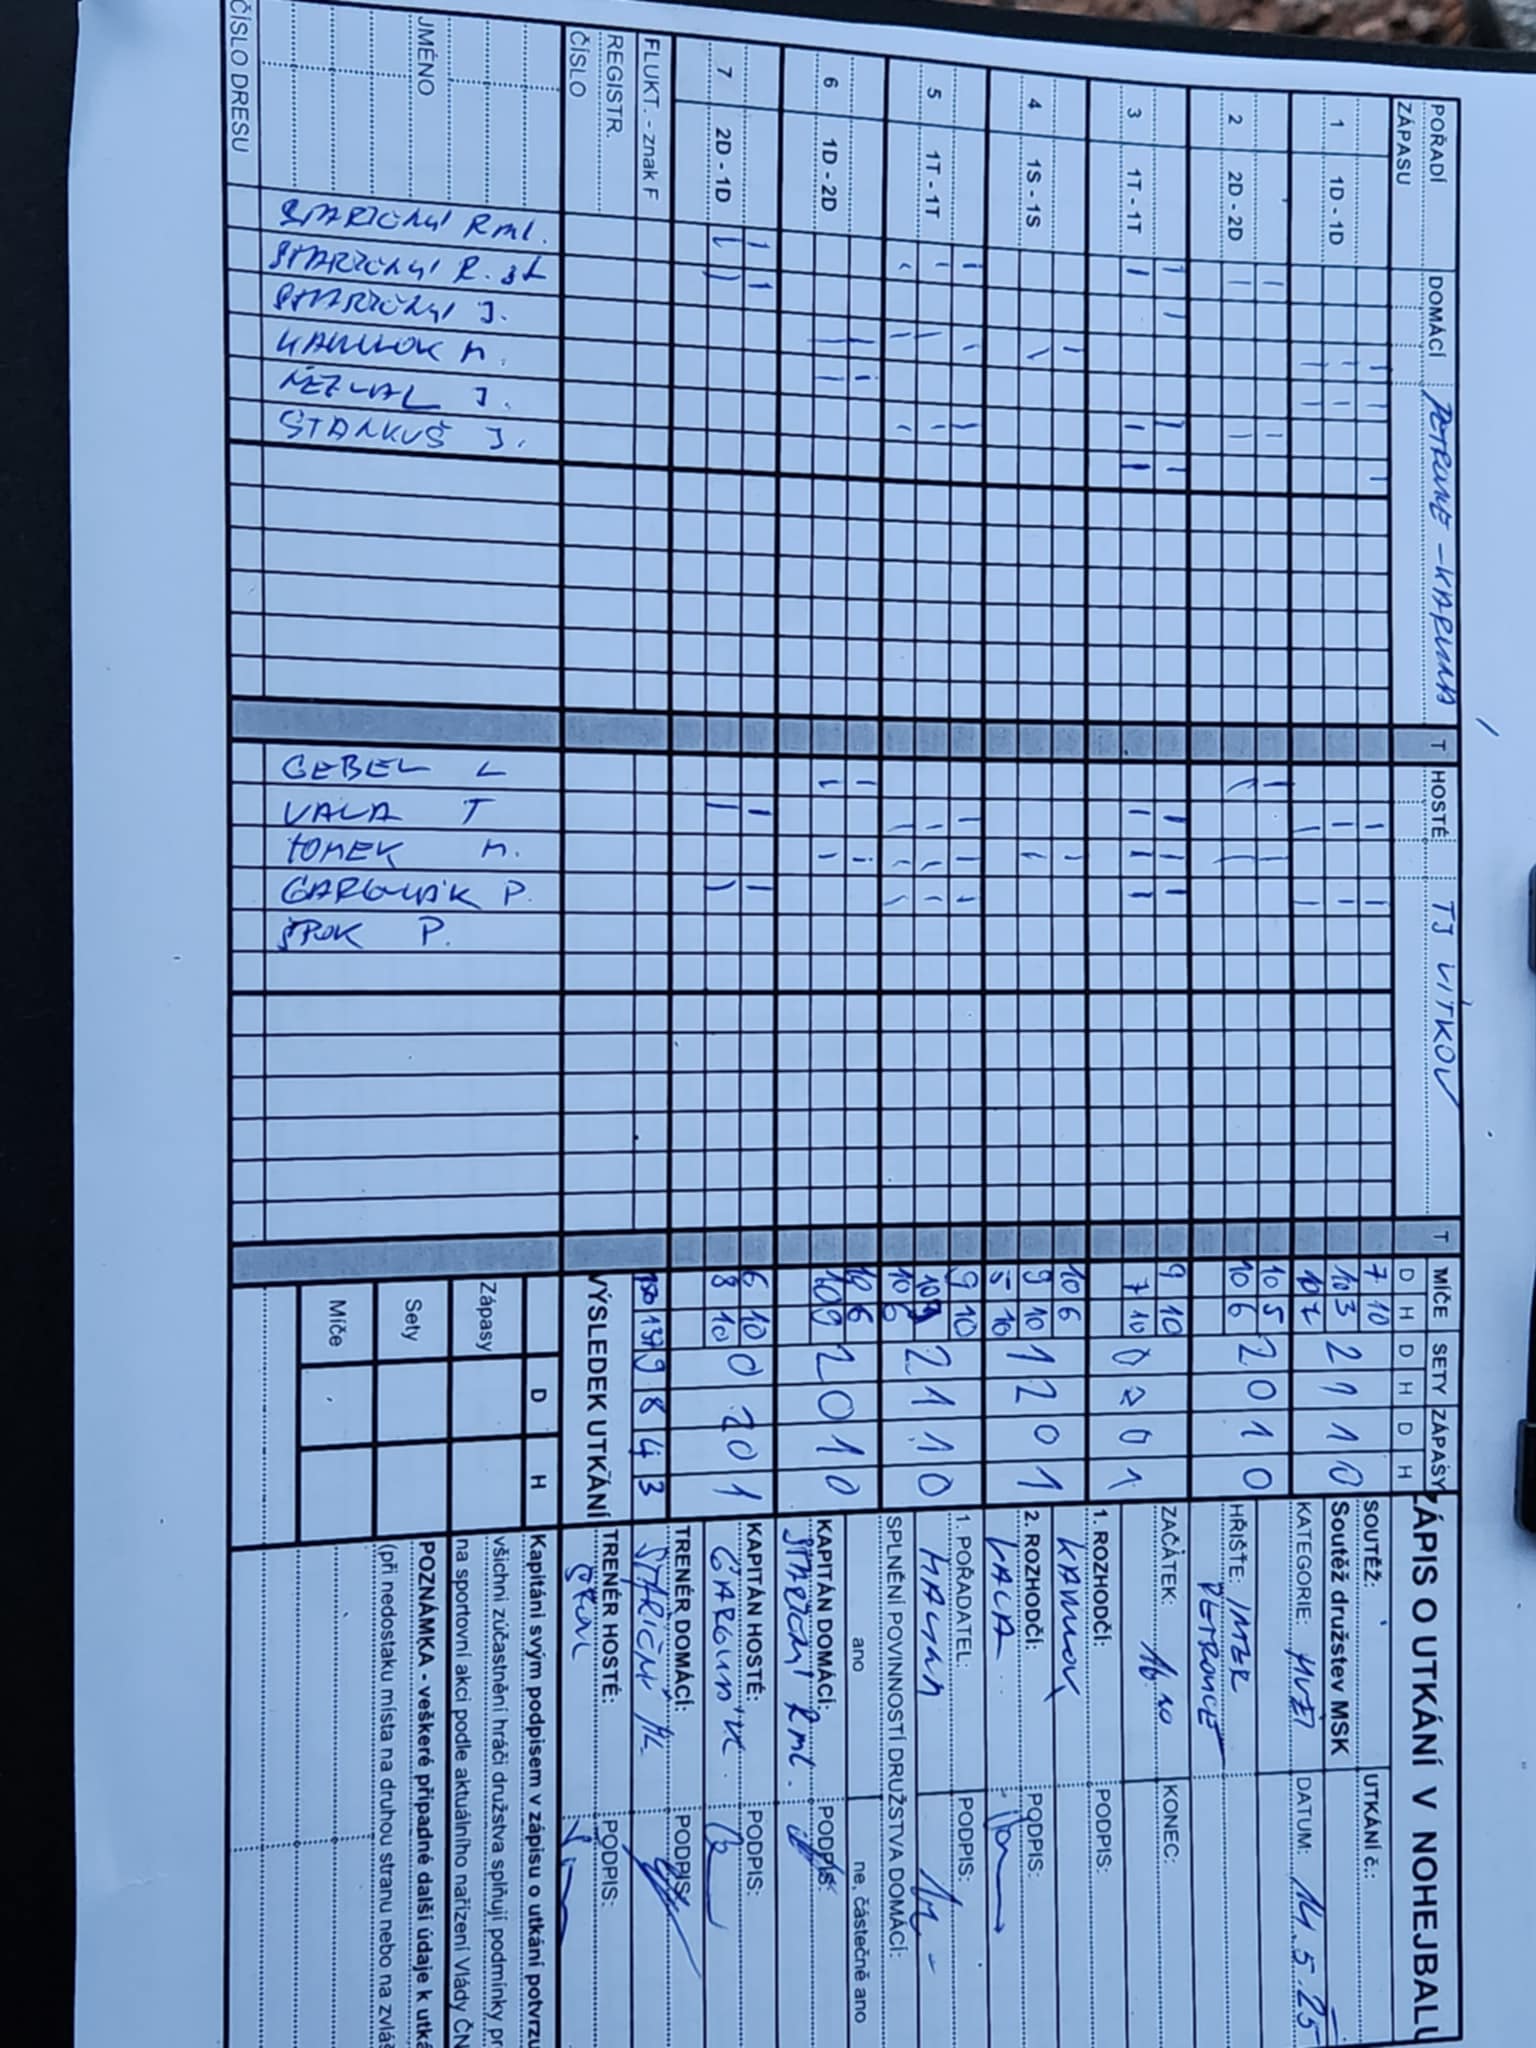 ZÁPIS O UTKÁNÍ V NOHEJBALU
POŘADÍ ZÁPASU
DOMÁCÍ PETROVICE - KARVINÁ
T
HOSTÉ TJ VÍTKOV
T
MÍČE SETY ZÁPASY
D H D H D H
SOUTĚŽ: UTKÁNÍ č.:
Soutěž družstev MSK
KATEGORIE: MUŽI DATUM: 11.5.25
HŘIŠTĚ:
PETROVICE
ZAČÁTEK: KONEC:
1. ROZHODČÍ: PODPIS:
2. ROZHODČÍ: PODPIS:
VALA
1. POŘADATEL: PODPIS:
SPLNĚNÍ POVINNOSTÍ DRUŽSTVA DOMÁCÍ:
ano ne, částečně ano
KAPITÁN DOMÁCÍ: PODPIS:
STARIČNÝ R ml.
KAPITÁN HOSTÉ: PODPIS:
TRENÉR DOMÁCÍ: PODPIS:
TRENÉR HOSTÉ: PODPIS:
1 1D - 1D
7 10
10 3 2 1 1 0
10 7
2 2D - 2D
10 5 2 0 1 0
10 6
3 1T - 1T
9 10 0 2 0 1
7 10
4 1S - 1S
10 6
9 10 1 2 0 1
5 10
5 1T - 1T
9 10
10 9 2 1 1 0
10 6
6 1D - 2D
10 6 2 0 1 0
10 9
7 2D - 1D
6 10 0 2 0 1
8 10
130 137 9 8 4 3
FLUKT. - znak F
REGISTR.
ČÍSLO
JMÉNO
ČÍSLO DRESU
STARIČNÝ R ml.
STARIČNÝ R. st
STARIČNÝ J.
NEZVAL J.
STANKUŠ J.
GEBEL L
VALA T
TOMEK M.
P.
P.
VÝSLEDEK UTKÁNÍ
D H
Zápasy
Sety
Míče
Kapitáni svým podpisem v zápisu o utkání potvrzu
všichni zúčastnění hráči družstva splňují podmínky pr
na sportovní akci podle aktuálního nařízení Vlády ČN
POZNÁMKA - veškeré případné další údaje k utká
(při nedostaku místa na druhou stranu nebo na zvláš